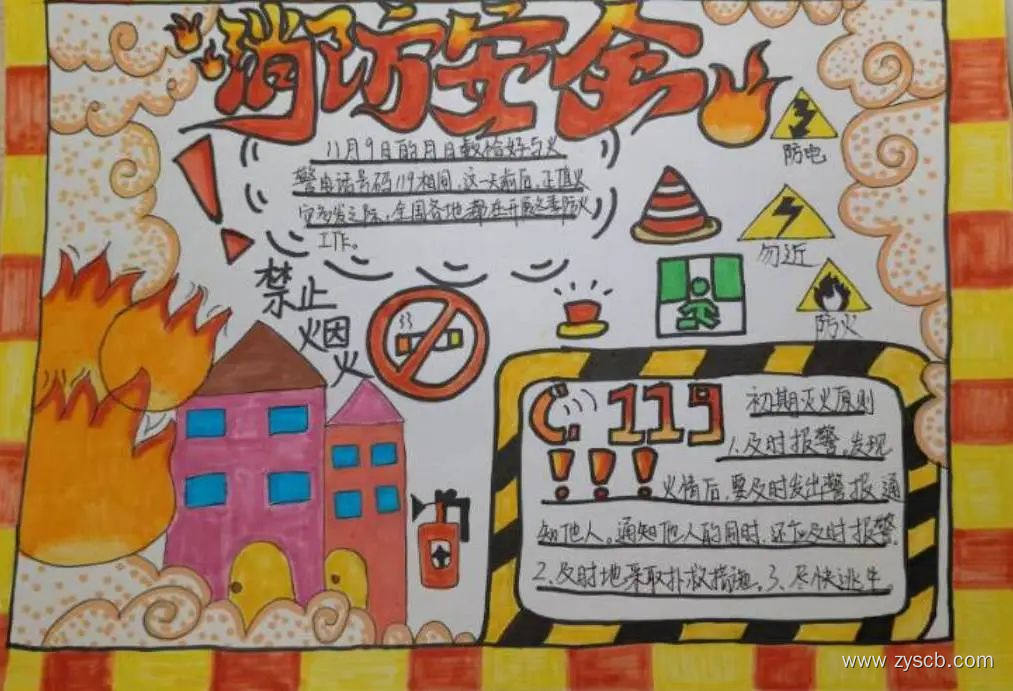 消防安全
11月9日的月日数恰好与火
警电话号码119相同,这一天前后,正值火
灾多发之际,全国各地都在开展冬季防火
工作。
防电
勿近
防火
禁止
烟火
119
!!!
初期灭火原则
1.及时报警,发现
火情后,要及时发出警报,通
知他人。通知他人的同时,还应及时报警.
2.及时地采取扑救措施。3.尽快逃生
www.zyscb.com